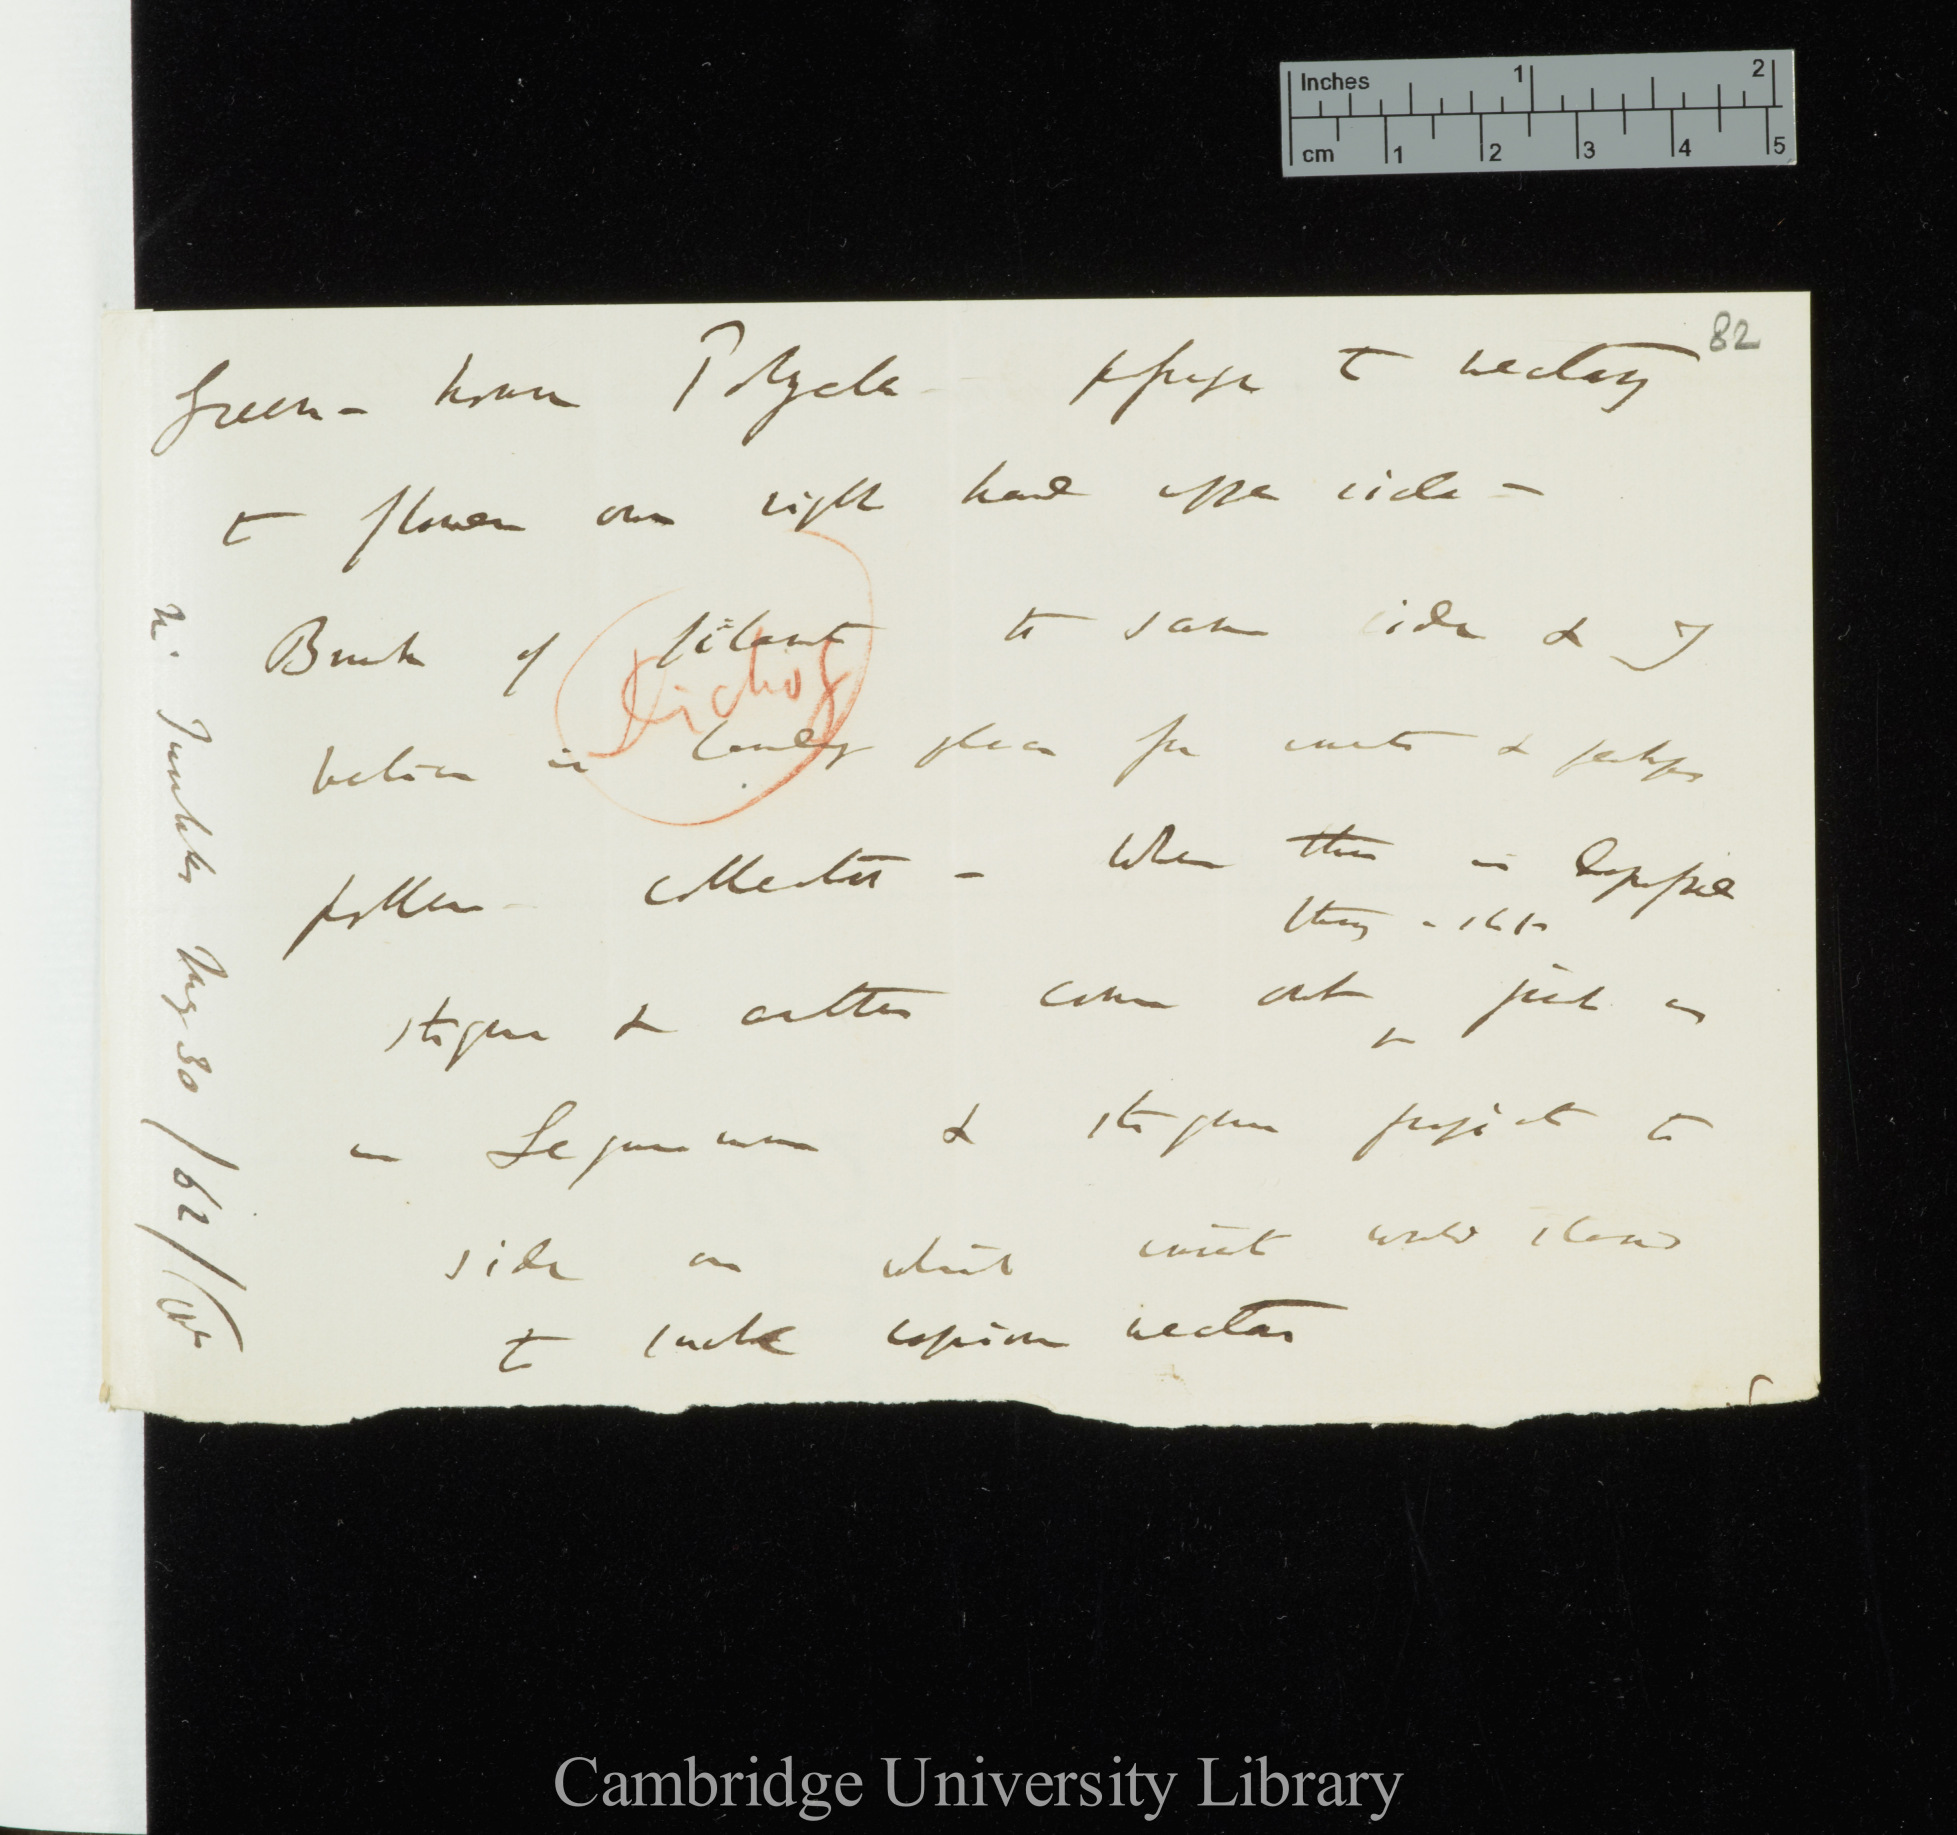 82
Green-house Polygala passage to nectary
to flower on right hand upper side —
Brush of filament to same side & I
believe is landing place for insects & perhaps
pollen collector — When this is depressed
stigma & anthers come out & just as
in Leguminosæ & stigma projects to
side on which insect would stand
to suck copious nectar
Aug 30/62/
Dichog
Inches 1 2
cm 1 2 3 4 5
Cambridge University Library